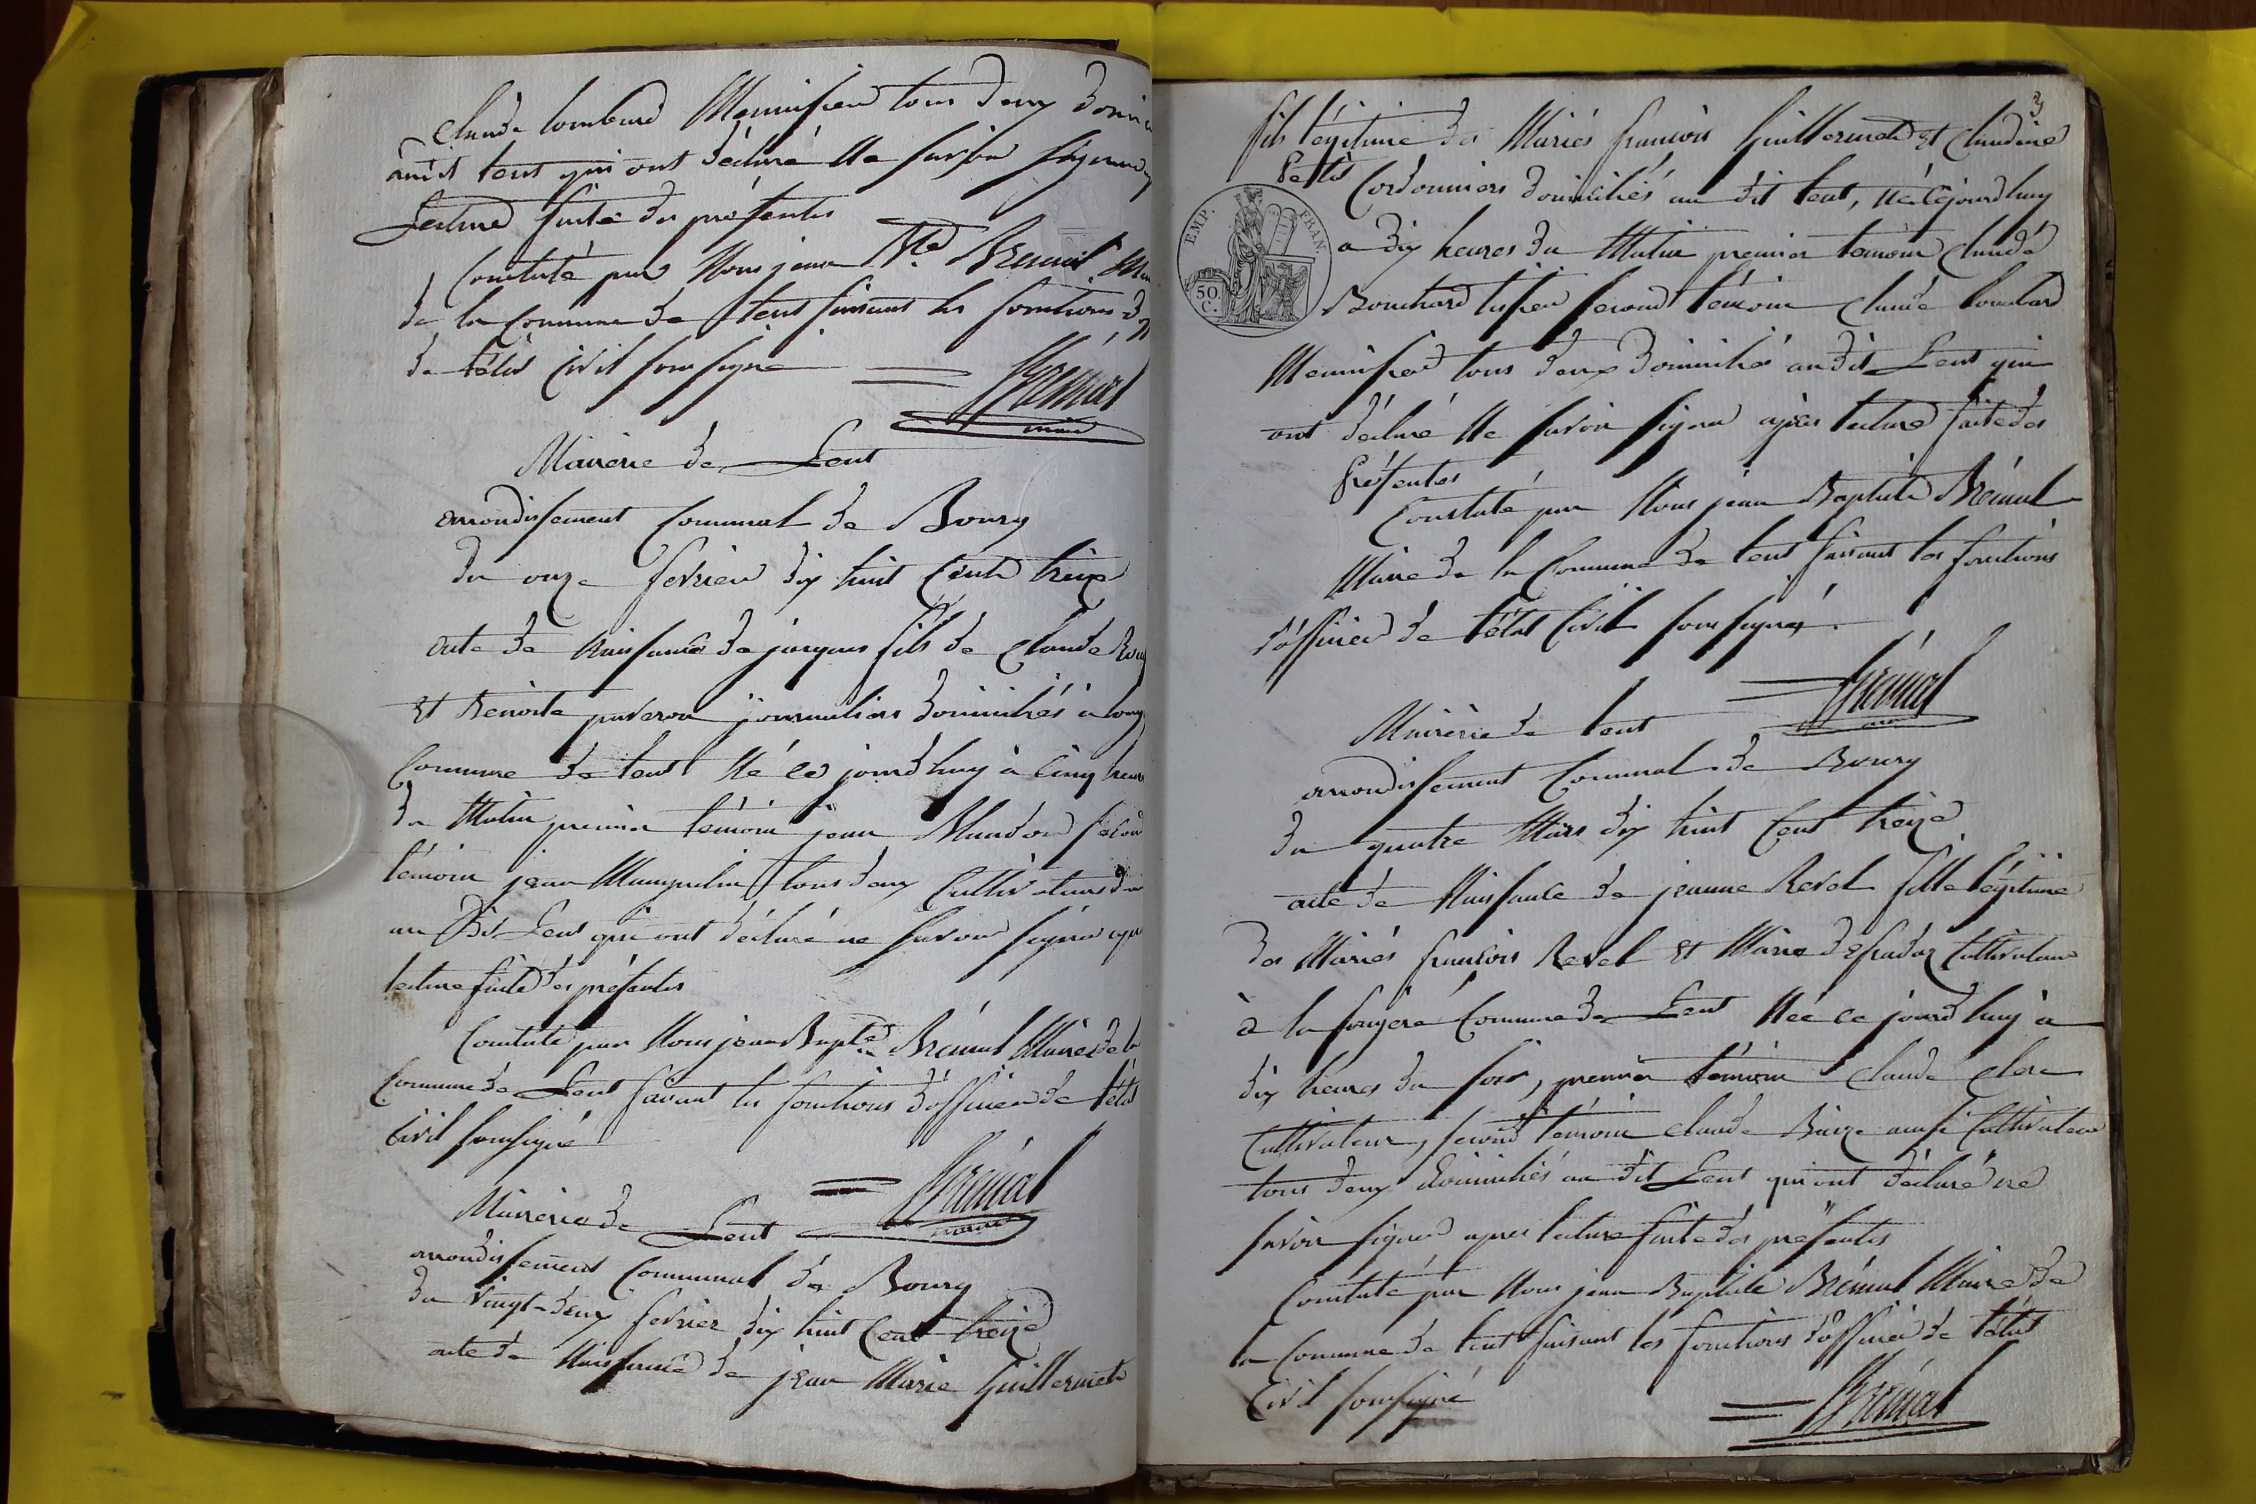 Claude lombard Menuisier tous deux domici
audit lent qui ont déclaré Ne savoir signer
Lecture faite des présentes
Constaté par Nous jean Bte Brémal Mai
de la Commune de lent faisant les fonctions d
de l'état Civil soussigné
Brémal
maire
Mairie de Lent
arrondissement Communal de Bourg
du onze fevrier dix huit Cent treize
acte de Naissance de jacques fils de Claude
Et Benoite journaliers domiciliés à
Commune de lent Né ce jourd'huy à Cinq heures
du Matin premier témoin jean Blandon second
témoin jean tous deux Cultivateurs
au dit Lent qui ont déclaré ne savoir signer
lecture faite des présentes
Constaté par Nous jean Bapte Brémal Maire de la
Commune de Lent faisant les fonctions d'officier de l'état
Civil soussigné
Brémal
maire
Mairie de Lent
arrondissement Communal de Bourg
du Vingt-deux fevrier dix huit Cent treize
acte de Naissance de jean Marie Guillermet
3
fils légitime des Mariés françois Guillermet Et Claudine
Petit Cordonniers domiciliés au dit lent, Né cejourd'huy
EMP. FRAN.
50.
C.
a dix heures du Matin premier temoin Claude
second témoin Claude lombard
Menuisier tous deux Domicilié audit Lent qui
ont déclaré Ne savoir signer après lecture faite des
Présentes
Constaté par Nous jean Baptiste Brémal
Maire de la Commune de lent faisant les fonctions
d'officier de l'état Civil soussigné.
Brémal
Mairie de lent
arrondissement Communal de Bourg
du quatre Mars dix huit Cent treize
acte de Naissance de jeanne Revel fille légitime
des Mariés françois Revel Et Marie Cultivateurs
à la fougere Commune de Lent Née ce jourd'huy à
dix heures du soir, premier témoin Claude Clerc
Cultivateur, second témoin Claude aussi Cultivateur
tous deux domiciliés au dit Lent qui ont déclaré ne
savoir signer apres lecture faite des présentes
Constaté par Nous jean Baptiste Brémal Maire de
la Commune de lent faisant les fonctions d'officier de l'état
Civil soussigné
Brémal